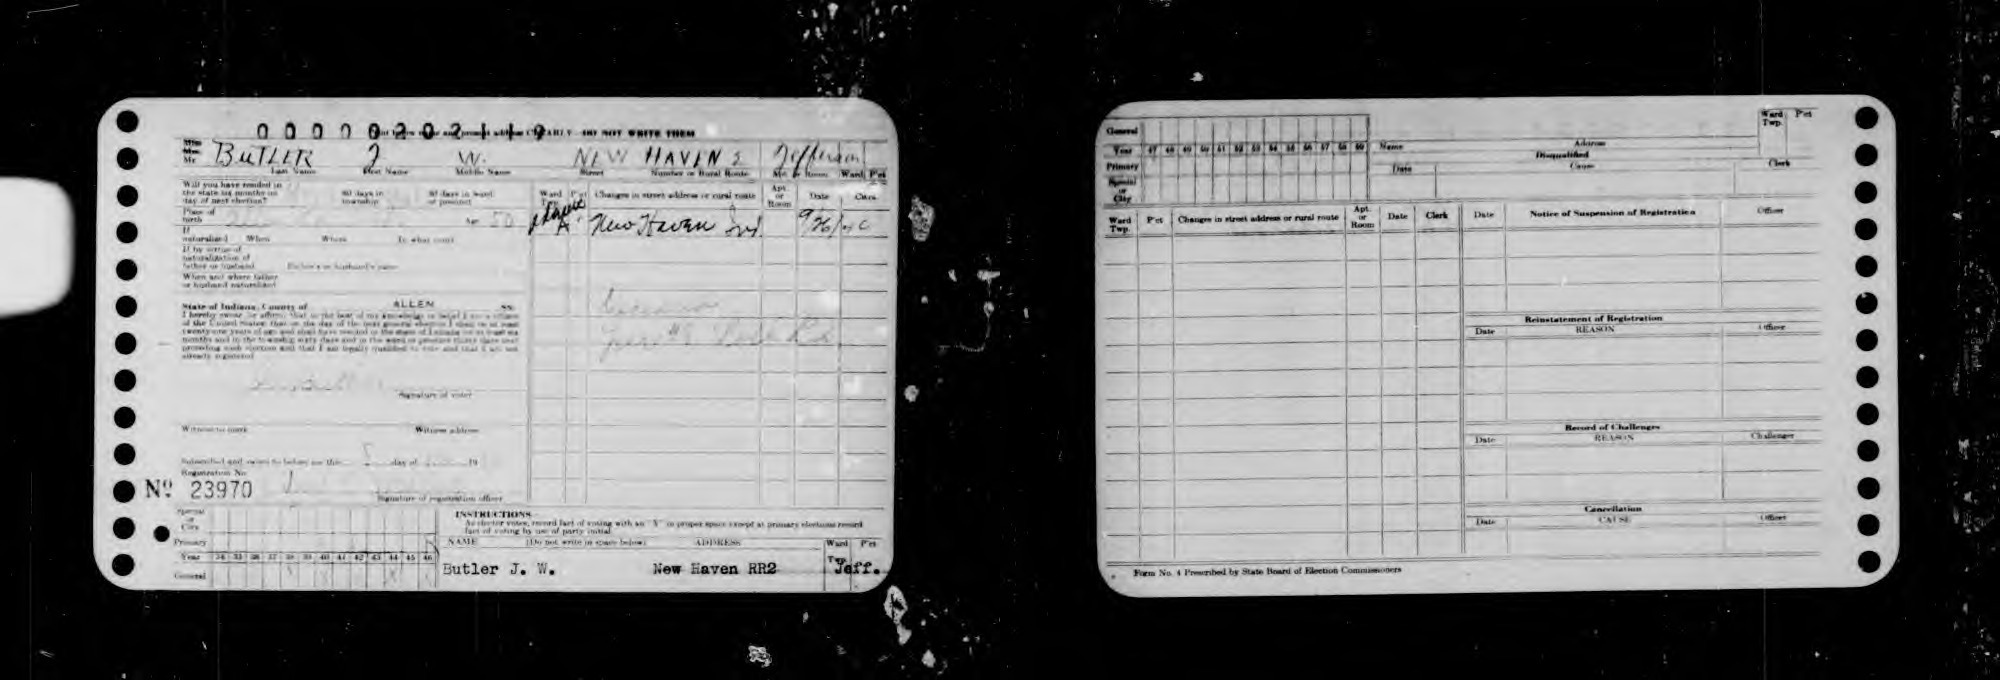 000000202119
CLEARLY - DO NOT WRITE THEM
Miss
Mrs.
Mr. BUTLER J W. NEW HAVEN 2 Jefferson
Last Name First Name Middle Name Street Number or Rural Route Apt. or Room Ward P'ct
Will you have resided in
the state six months on
day of next election?
60 days in
township
30 days in ward
or precinct
Place of
birth
Age 50
If
naturalized When Where In what court
If by virtue of
naturalization of
father or husband Father's or husband's name
When and where father
or husband naturalized
State of Indiana, County of ALLEN SS:
I hereby swear (or affirm) that to the best of my knowledge or belief I am a citizen
of the United States; that on the day of the next general election I shall be at least
twenty-one years of age and shall have resided in the state of Indiana for at least six
months and in the township sixty days and in the ward or precinct thirty days next
preceding such election and that I am legally qualified to vote and that I am not
already registered
Signature of voter
Witness to mark Witness address
Subscribed and sworn to before me this day of 19
Registration No.
Nº 23970
Signature of registration officer
Ward Twp. P'ct Changes in street address or rural route Apt. or Room Date Clerk
New Haven Ind. 9/26/
Special
or
City
Primary
Year 34 35 36 37 38 39 40 41 42 43 44 45 46
General
INSTRUCTIONS
As elector votes, record fact of voting with an "X" in proper space except at primary elections record
fact of voting by use of party initial.
NAME (Do not write in space below) ADDRESS Ward P'ct
Twp.
Butler J. W. New Haven RR2 Jeff.
General
Year 47 48 49 50 51 52 53 54 55 56 57 58 59
Primary
Special
or
City
Name Address
Ward
Twp.
P'ct
Disqualified
Date Cause Clerk
Ward
Twp.
P'ct Changes in street address or rural route Apt. or Room Date Clerk
Date Notice of Suspension of Registration Officer
Reinstatement of Registration
Date REASON Officer
Record of Challenges
Date REASON Challenger
Cancellation
Date CAUSE Officer
Form No. 4 Prescribed by State Board of Election Commissioners